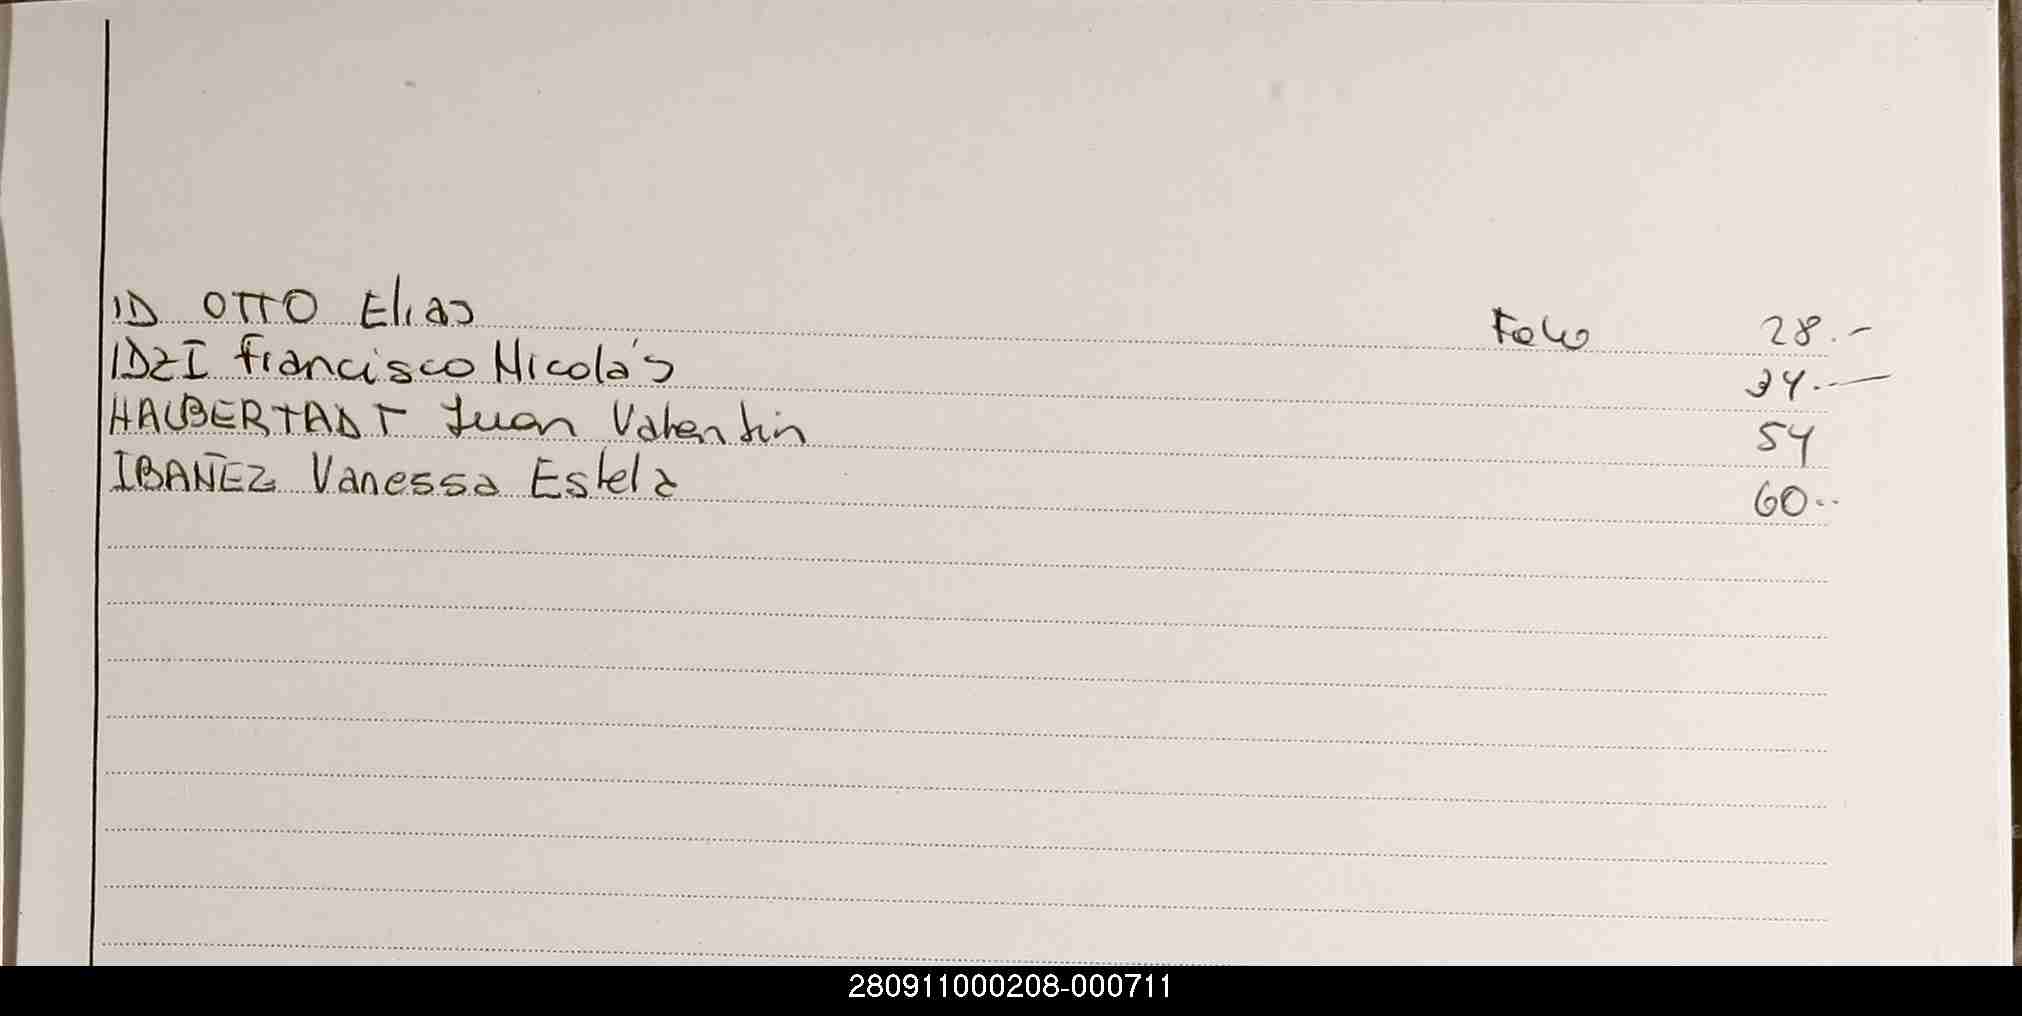 ID OTTO Elias Folio 28.-
IDZI Francisco Nicolás 34.-
HAUBERTADT Juan Valentin 54
IBAÑEZ Vanessa Estela 60..
280911000208-000711